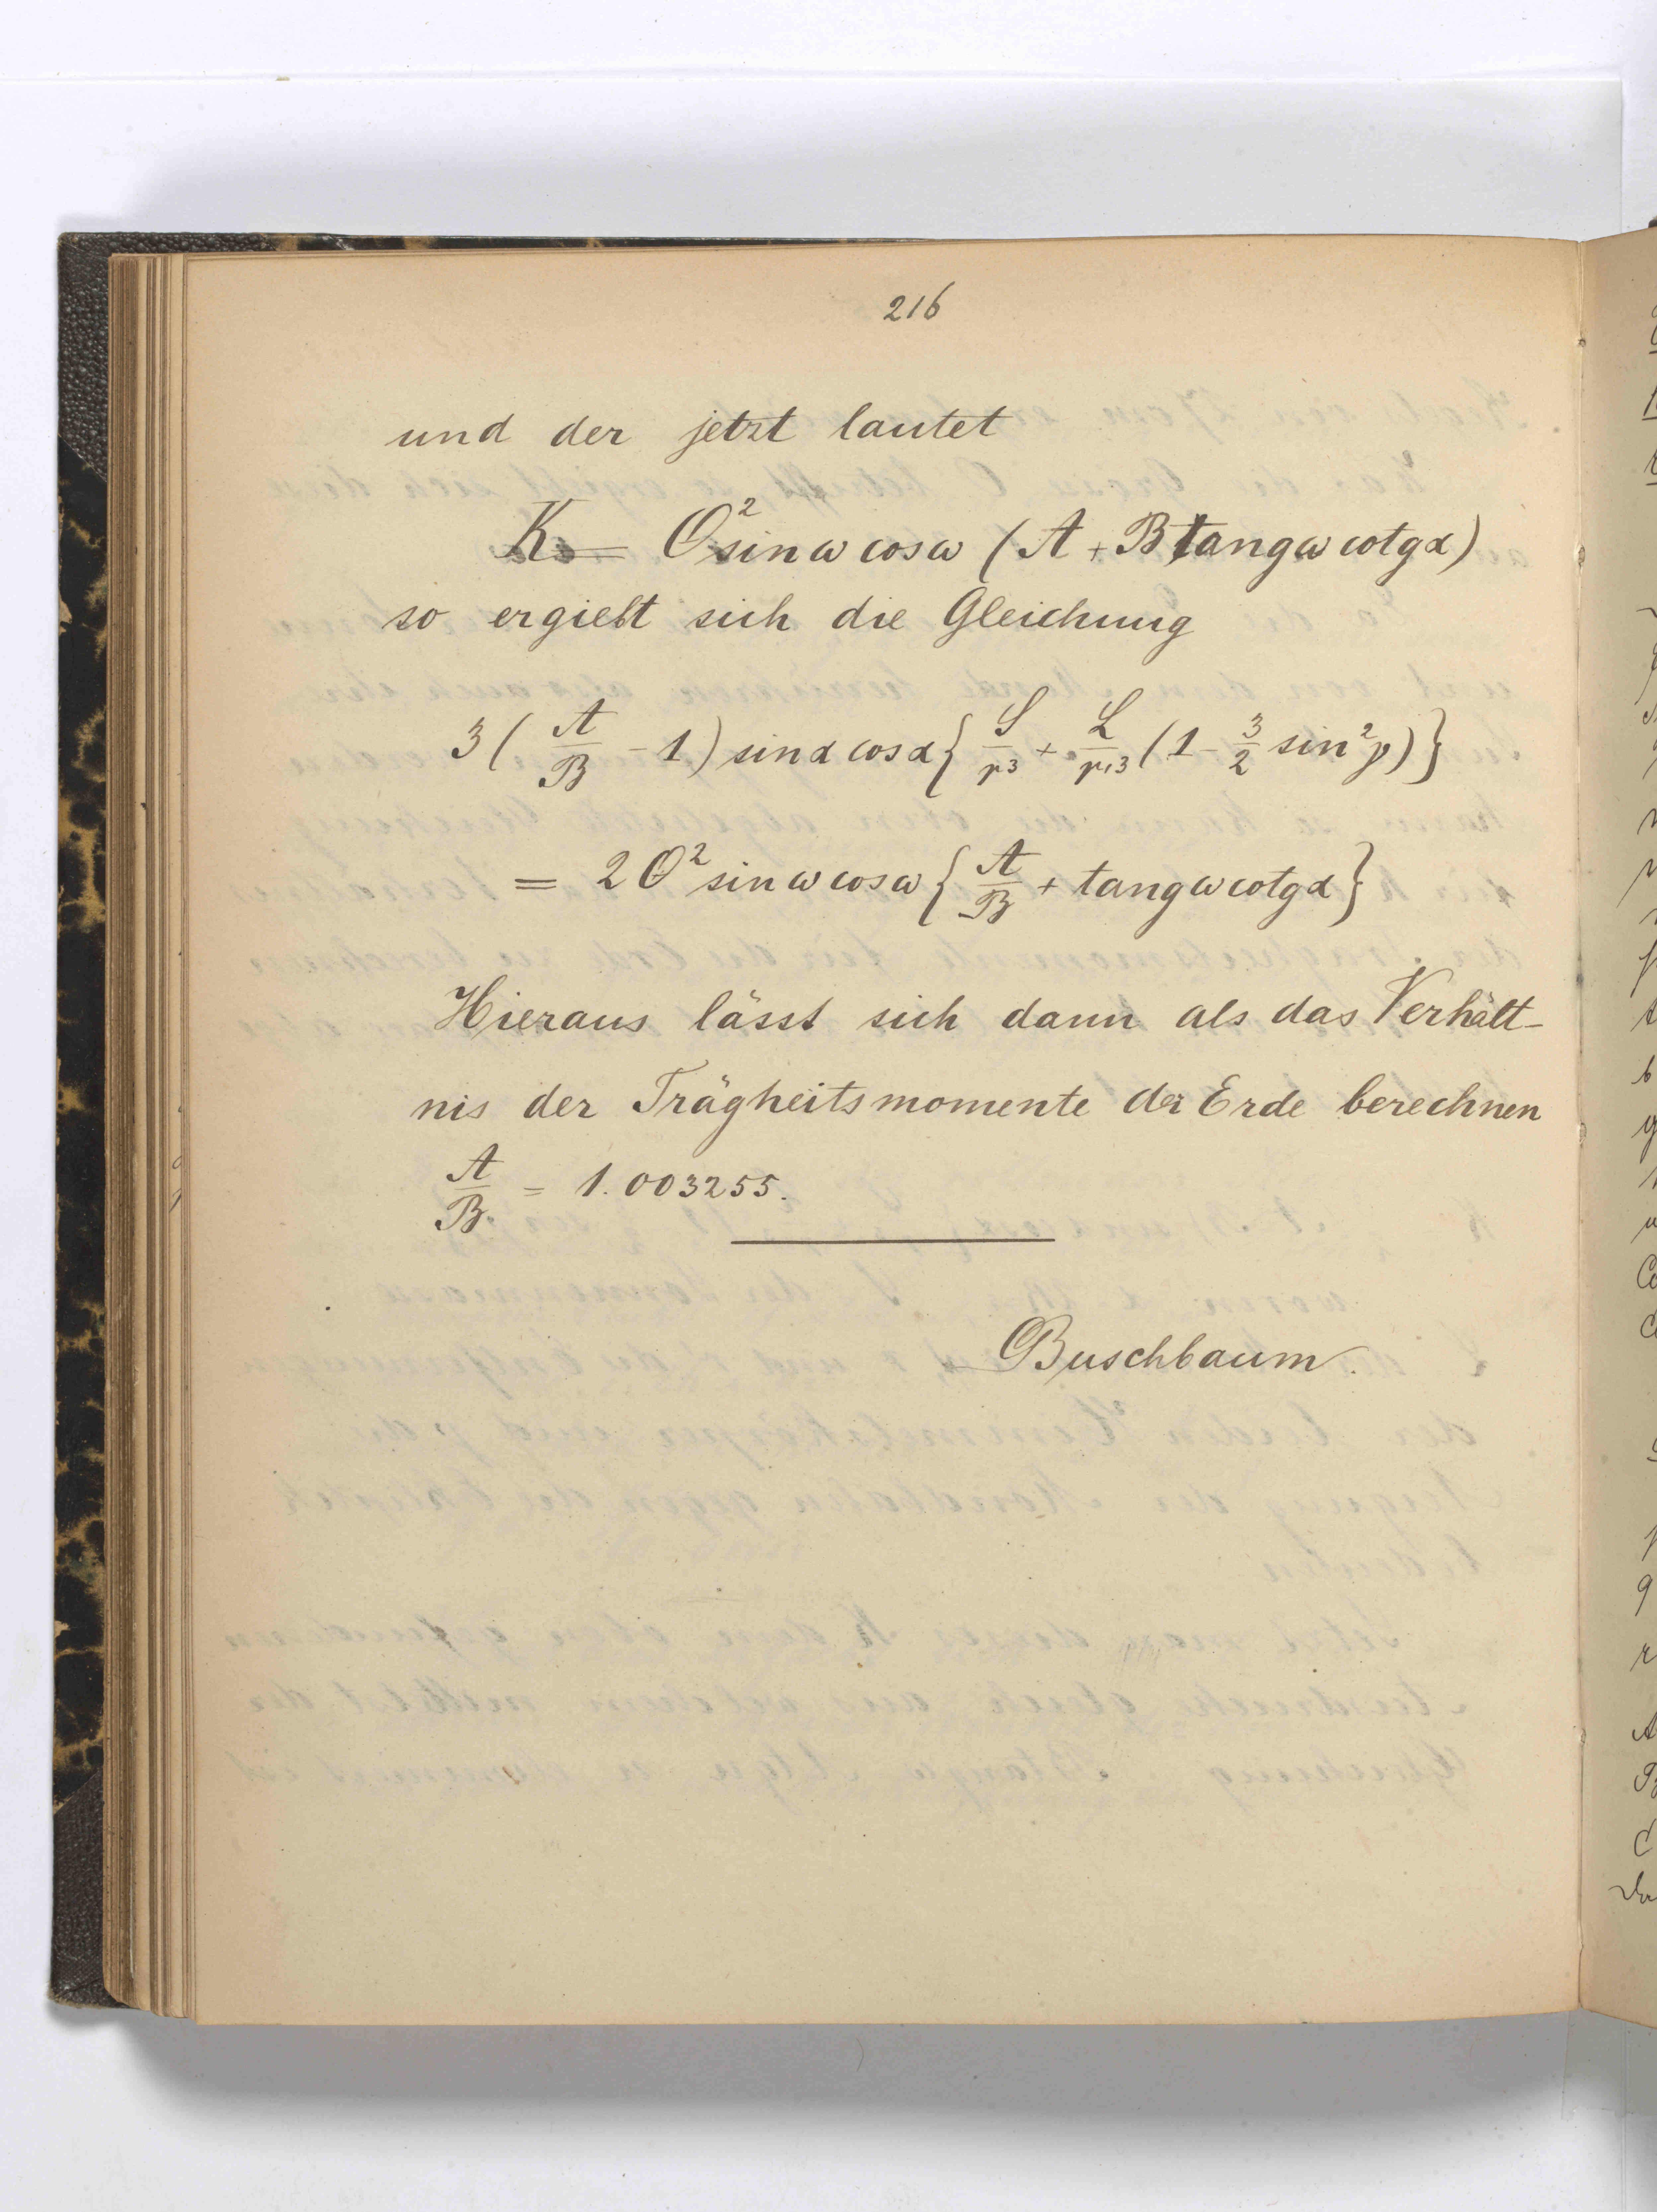 216
und der jetzt lautet
K = O² sin ω cos ω (A + B tang ω cotg α)
so ergiebt sich die Gleichung
3 ( A/B - 1 ) sin α cos α { S/r³ + L/r'³ ( 1 - 3/2 sin² γ ) }
= 2 O² sin ω cos ω { A/B + tang ω cotg α }
Hieraus lässt sich dann als das Verhält-
nis der Trägheitsmomente der Erde berechnen
A/B = 1.003255.
Buschbaum.